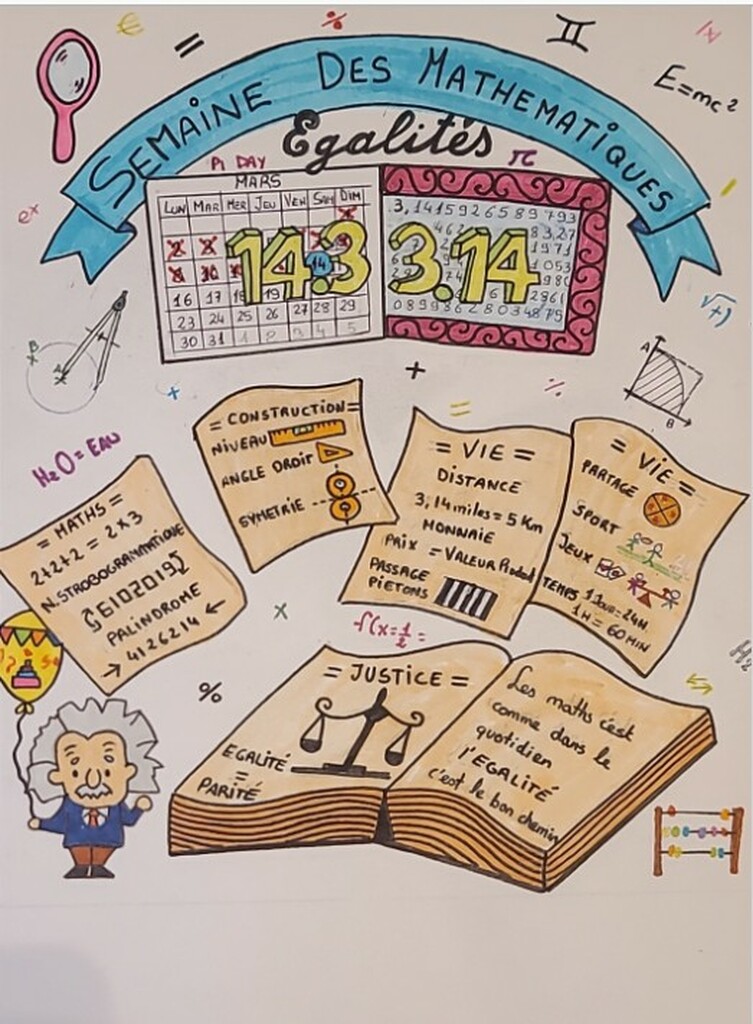 SEMAINE DES MATHEMATIQUES
Egalités
E=mc²
PI DAY
π
MARS
LUN MAR MER JEU VEN SAM DIM
14.3
3.14
14
16 17 18 19
23 24 25 26 27 28 29
30 31 1 2 3 4 5
3,141592658979 3
8327
1971
1053
2861
e^x
€
%
=
√+)
A
B
A
B
+
H₂O = EAU
= MATHS =
2+2+2 = 2x3
N.STROBOGRAMMATIQUE
6102019
PALINDROME
→ 4126214 ←
= CONSTRUCTION =
NIVEAU
ANGLE DROIT
SYMETRIE
= VIE =
DISTANCE
3,14 miles = 5 Km
MONNAIE
PRIX = VALEUR Produit
PASSAGE
PIETONS
= VIE =
PARTAGE
SPORT
JEUX
TEMPS 1 Jour = 24H
1H = 60 MIN
x
%
f(x=½=
= JUSTICE =
EGALITÉ
=
PARITÉ
Les maths c'est
comme dans le
quotidien
l'EGALITÉ
c'est le bon chemin